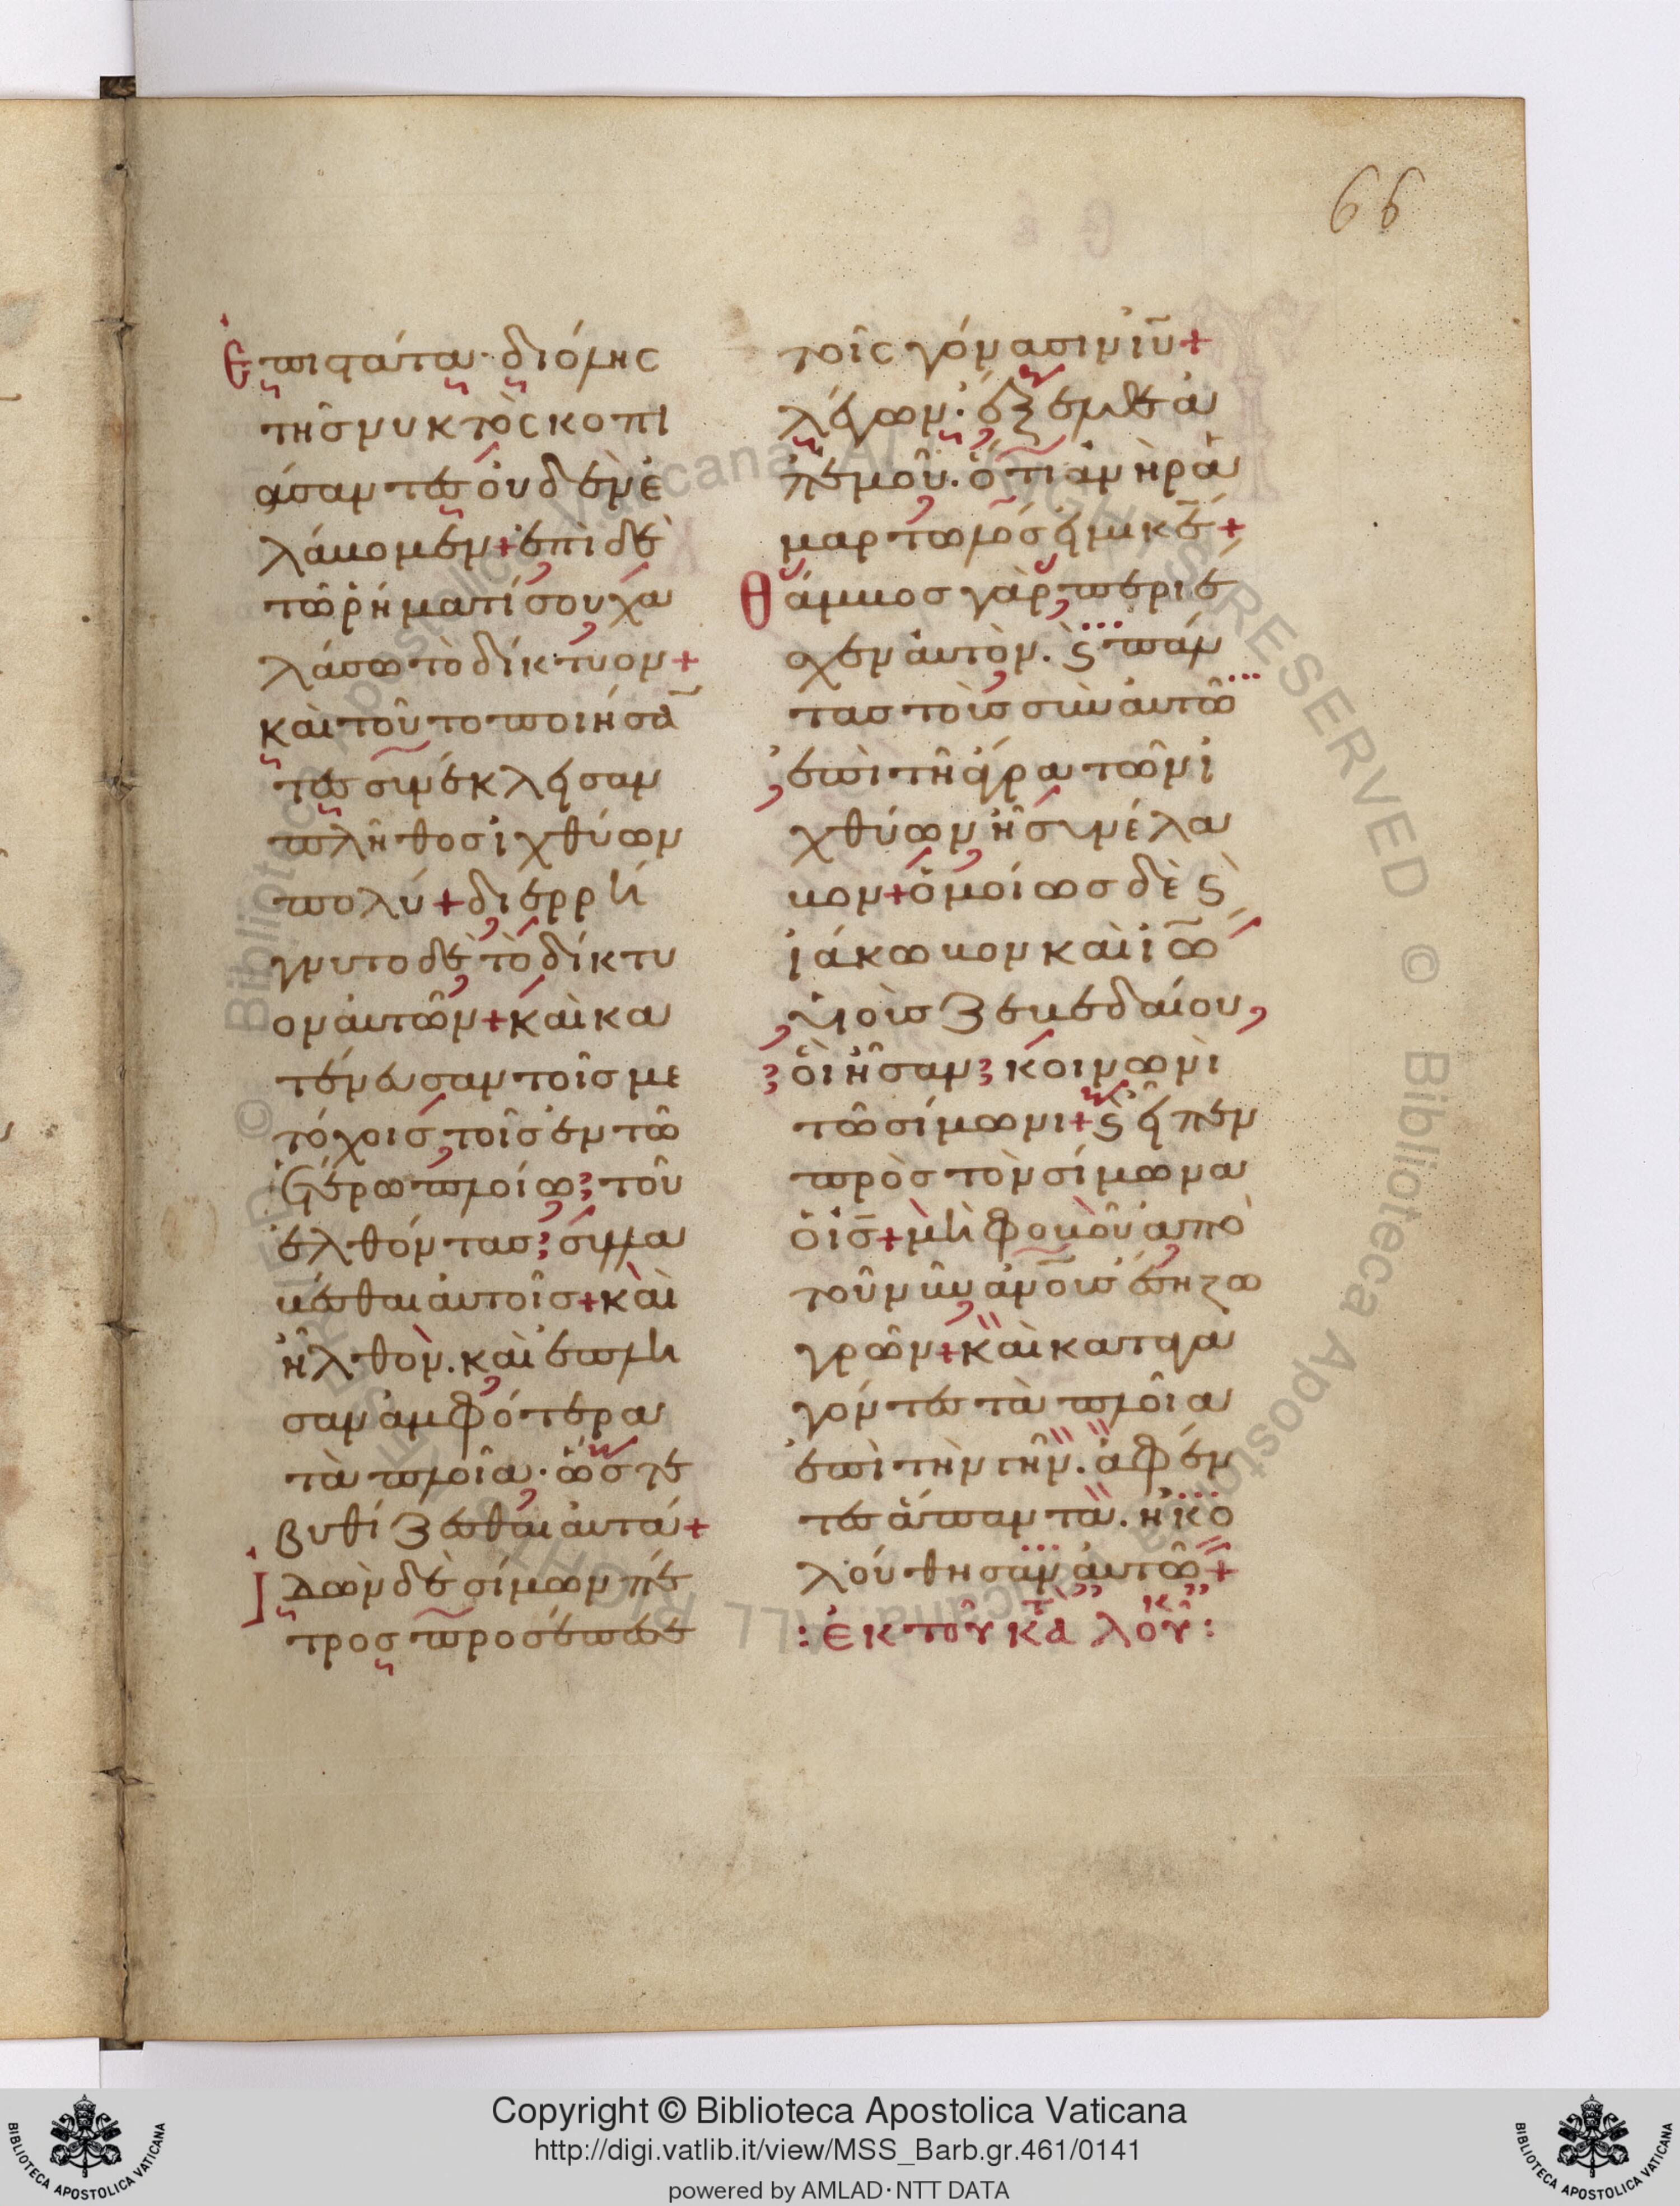 66
Ἐπιστάτα· δι' ὅλης
τῆς νυκτὸς κοπι
άσαντες οὐδὲν ἐ
λάβομεν + ἐπὶ δὲ
τῶ ῥήματί σου χα
λάσω τὸ δίκτυον +
καὶ τοῦτο ποιήσα̅
τες συνέκλεισαν
πλῆθος ἰχθύων
πολύ + διερρή
γνυτο δὲ τὸ δίκτυ
ον αὐτῶν + καὶ κα
τένευσαν τοῖς με
τόχοις τοῖς ἐν τῶ
ἑτέρω πλοίω; τοῦ
ἐλθόντας; συλλα
βέσθαι αὐτοῖς + καὶ
ἦλθον. καὶ ἔπλη
σαν ἀμφότερα
τὰ πλοῖα· ὥστε
βυθίζεσθαι αὐτά +
Ἰδὼν δὲ σίμων πέ
τρος προσέπεσε
τοῖς γόνασιν ἰυ̅ +
λέγων· ἔξελθε ἀ
π' ἐμοῦ. ὅτι ἀνὴρ ἁ
μαρτωλός εἰμι κε̅ +
Θάμβος γὰρ περιέ
σχεν αὐτὸν. ϗ πάν
τας τοὺς σὺν αὐτῶ
ἐπὶ τῆ ἄγρα τῶν ἰ
χθύων ἧ συνέλα
βον + ὁμοίως δὲ ϗ
ἰάκωβον καὶ ἰω̅
υἱοὺς ζεβεδαίου,
οἳ ἦσαν; κοινωνὶ
τῶ σίμωνι + ϗ εἶπεν
πρὸς τὸν σίμωνα
ὁ ις̅ + μὴ φοβοῦ ἀπὸ
τοῦ νῦν ἀν̅ους ἔση ζω
γρῶν + καὶ καταγα
γόντες τὰ πλοῖα
ἐπὶ τὴν γῆν. ἀφέν
τες ἅπαντα. ἠκο
λούθησαν αὐτῶ +
: ἐκ τοῦ κατὰ λουκ :
Copyright © Biblioteca Apostolica Vaticana
http://digi.vatlib.it/view/MSS_Barb.gr.461/0141
powered by AMLAD·NTT DATA
BIBLIOTECA APOSTOLICA VATICANA
BIBLIOTECA APOSTOLICA VATICANA